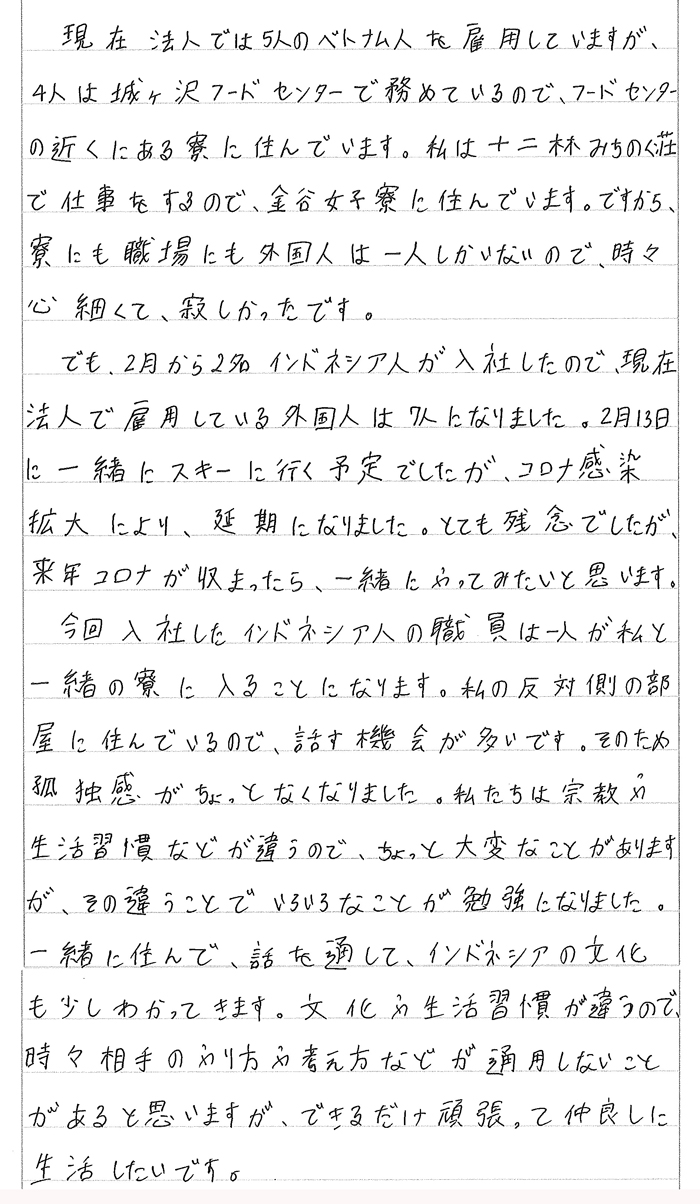 現在 法人では5人のベトナム人を雇用していますが、
4人は城ヶ沢フードセンターで務めているので、フードセンター
の近くにある寮に住んでいます。私は十二林みちのく荘
で仕事をするので、金谷女子寮に住んでいます。ですから、
寮にも職場にも外国人は一人しかいないので、時々
心細くて、寂しかったです。
でも、2月から2名インドネシア人が入社したので、現在
法人で雇用している外国人は7人になりました。2月13日
に一緒にスキーに行く予定でしたが、コロナ感染
拡大により、延期になりました。とても残念でしたが、
来年コロナが収まったら、一緒にやってみたいと思います。
今回入社したインドネシア人の職員は一人が私と
一緒の寮に入ることになります。私の反対側の部
屋に住んでいるので、話す機会が多いです。そのため
孤独感がちょっとなくなりました。私たちは宗教や
生活習慣などが違うので、ちょっと大変なことがあります
が、その違うことでいろいろなことが勉強になりました。
一緒に住んで、話を通して、インドネシアの文化
も少しわかってきます。文化や生活習慣が違うので、
時々相手のやり方や考え方などが通用しないこと
があると思いますが、できるだけ頑張って仲良しに
生活したいです。